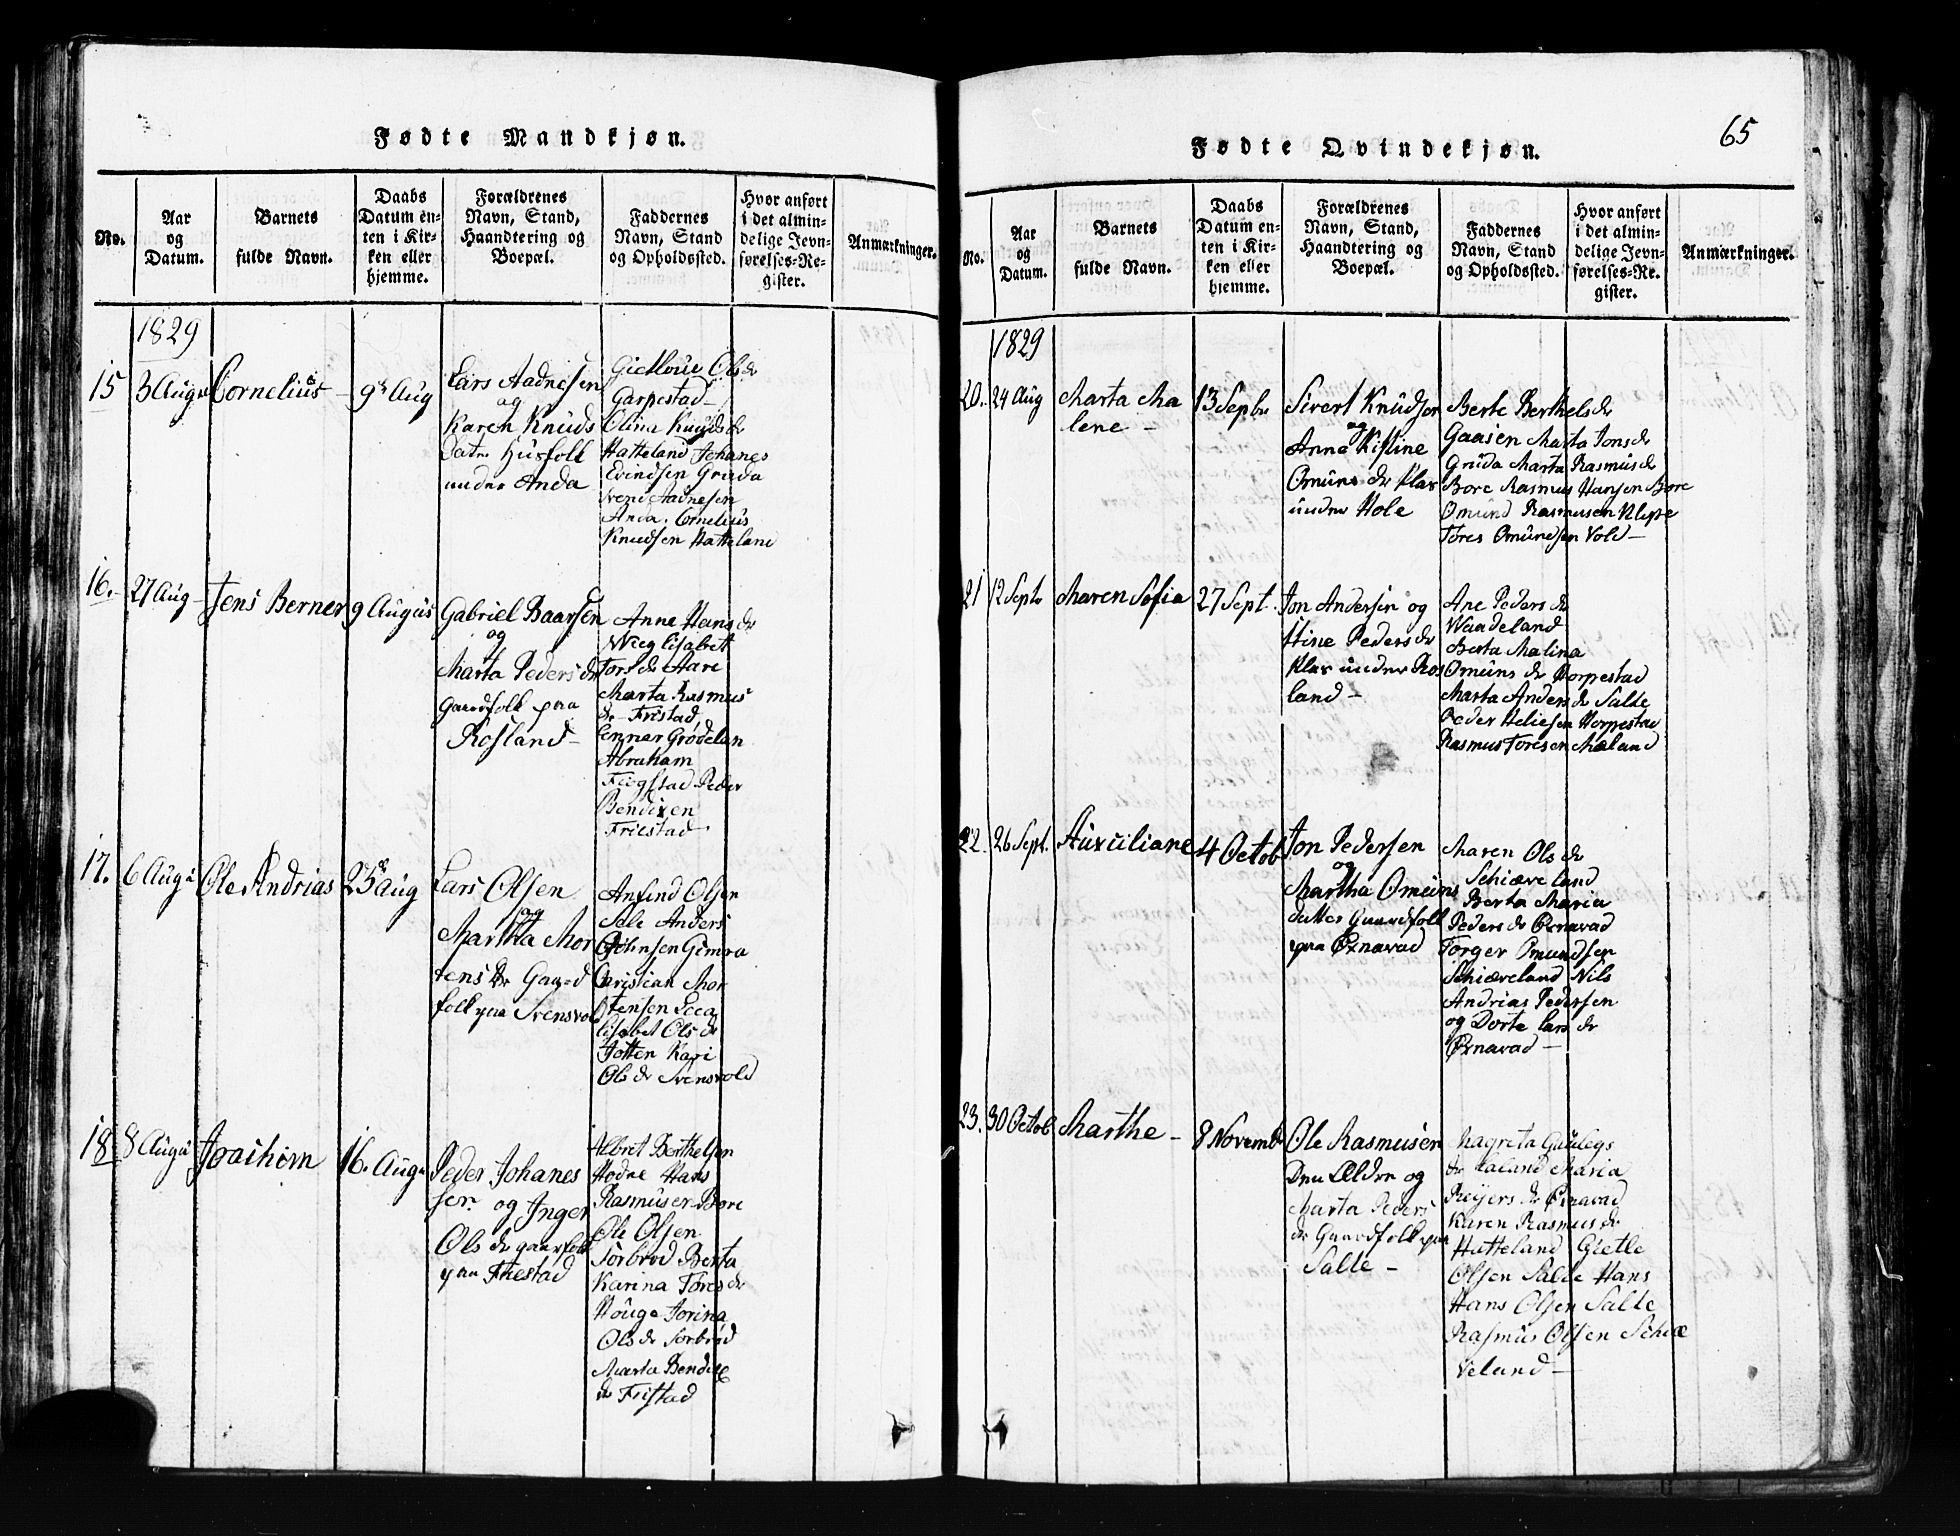 Fødte Mandkjøn.
No.
Aar
og
Datum.
Barnets
fulde Navn.
Daabs
Datum en-
ten i Kir-
ken eller
hjemme.
Forældrenes
Navn, Stand,
Haandtering og
Boepæl.
Faddernes
Navn, Stand
og Opholdssted.
Hvor anført
i det almin-
delige Jevn-
førelses-Re-
gister.
Anmærkninger.
1829
15
3 Aug
Cornelius
9 Aug
Lars Aadnesen
og
Karen Knuds
Datr Husfolk
under Anda
Ols dr
Garpestad
Olina Knuds dr
Hatteland Johanes
Evindsen Gruda
Svend Aadnesen
Anda. Cornelius
Knudsen Hatteland
16.
27 Aug
Jens Berner
9 Augus
Gabriel Baarsen
og
Marta Peders dr
gaardfolk paa
Rosland
Anne Hans dr
Wieg lisabet
Tors dr Aare
Marta Rasmus
dr Fristad
Grødelan
Abraham
Peder
Bendixen
Friestad
17.
6 Aug
Ole Andrias
23 Aug
Lars Olsen
og
Martha Mor
tens dr Gaard
folk paa Svensvol
Anfind Olsen
Sele Anders
Johnsen Gimra
Christian Mor
tensen
lisabet Ols dr
Jotten Kari
Ols dr Svensvold
18
8 Aug
Joachim
16. Aug
Peder Johanes
sen og Inger
Ols dr gaarfolk
paa Friestad
Albret Berthelsen
Hodne Hans
Rasmusen Bore
Ole Olsen
Sørbrød Berta
Karina Tores dr
Houge Jorina
Ols dr Sørbrød
Marta Bendix
dr Fristad
65
Fødte Qvindekjøn.
No.
Aar
og
Datum.
Barnets
fulde Navn.
Daabs
Datum en-
ten i Kir-
ken eller
hjemme.
Forældrenes
Navn, Stand,
Haandtering og
Boepæl.
Faddernes
Navn, Stand
og Opholdssted.
Hvor anført
i det almin-
delige Jevn-
førelses-Re-
gister.
Anmærkninger.
1829
20.
24 Aug
Marta Ma
lene
13 Septr
Sivert Knudsen
og
Anna Kistine
Omuns dr Plas
under Hole
Berte Berthels dr
Gaasen Marta Jons dr
Gruda Marta Rasmus dr
Bore Rasmus Hansen Bore
Omund Rasmusen Kleppe
Tores Omundsen Vold
21
12 Septr
Maren Sofia
27 Sept.
Jon Andersen og
Stine Peders dr
Plas under Ros
land
Ane Peders dr
Waadeland
Berta Malina
Omuns dr Horpestad
Marta Anders dr Salte
Peder Heliesen Horpestad
Rasmus Toresen Mæland
22.
26 Sept.
Auxciliane
4 Octob
Jon Pedersen
og
Martha Omuns
datter Gaardfolk
paa Øxnavad
Maren Ols dr
Schiæveland
Berta Maria
Peders dr Øxnavad
Torger Omundsen
Schiæveland Nils
Andrias Pedersen
og Dorte lars dr
Øxnavad
23.
30 Octob
Marthe
8 Novemb
Ole Rasmusen
Den Ældre og
Marta Peders
dr Gaardfolk paa
Salte
Magreta Gunlegs
dr Laland Maria
Reyers dr Øxnavad
Karen Rasmus dr
Hatteland Gietle
Olsen Salte Hans
Hans Olsen Salte
Rasmus Olsen Schiæ
veland